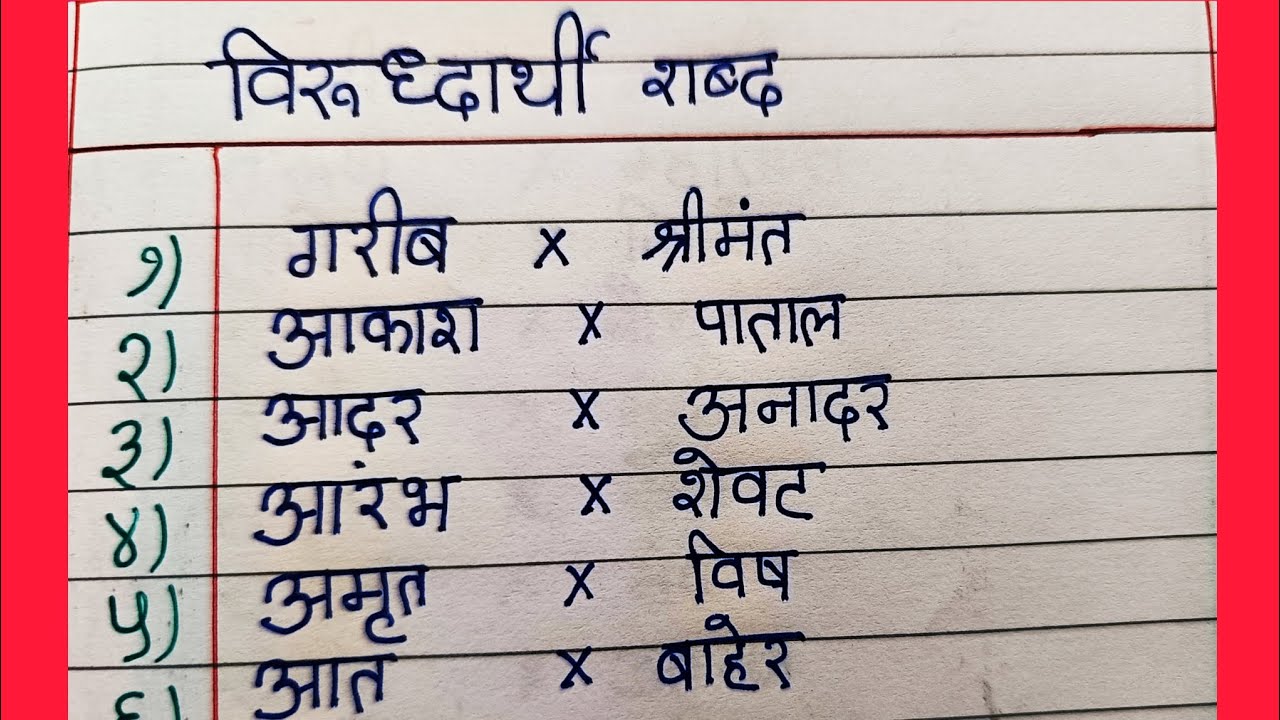 विरूध्दार्थी शब्द
१) गरीब x श्रीमंत
२) आकाश x पाताल
३) आदर x अनादर
४) आरंभ x शेवट
५) अमृत x विष
६) आत x बाहेर